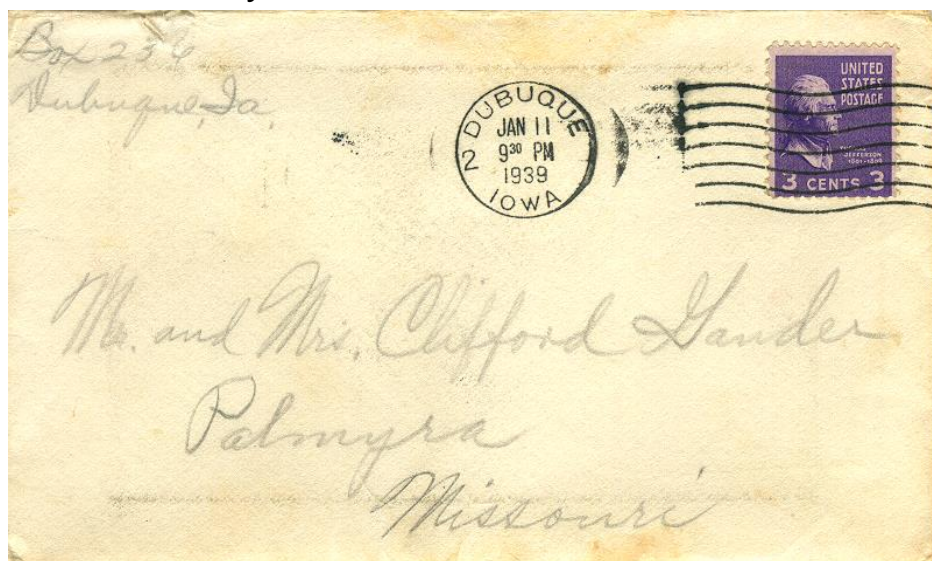 Box 236
Dubuque, Ia.
2 DUBUQUE
JAN 11
9³⁰ PM
1939
IOWA
UNITED
STATES
POSTAGE
JEFFERSON
3 CENTS 3
Mr. and Mrs. Clifford Gander
Palmyra
Missouri